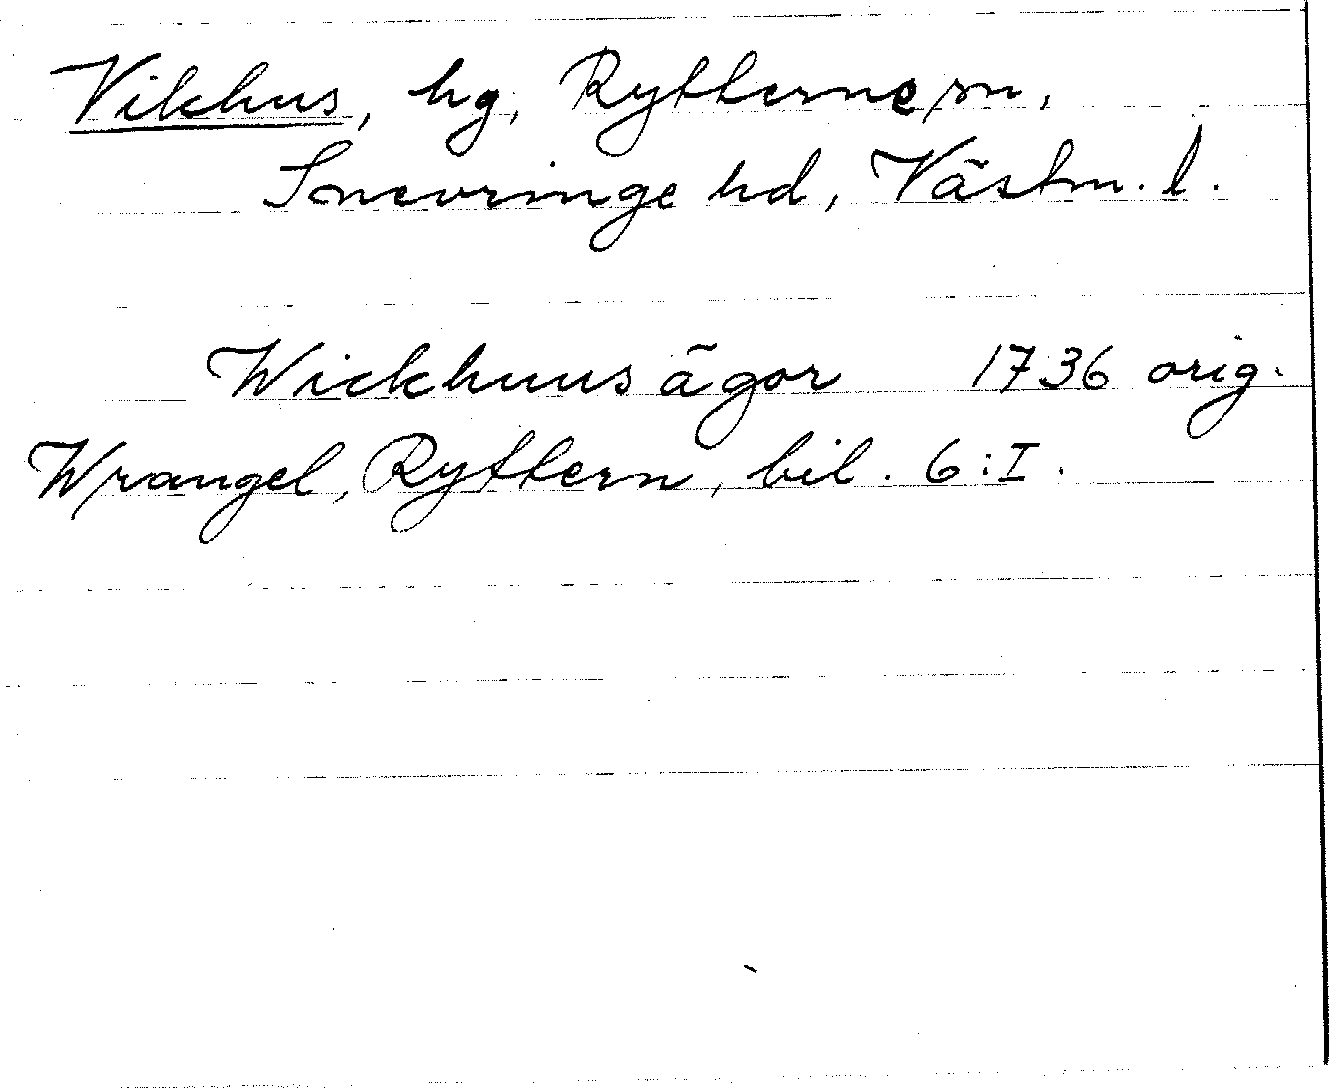 Vikhus, hg, Rytterne sn,
Snevringe hd, Västm. l.
Wickhuus ägor 1736 orig.
Wrangel, Ryttern, bil. 6:I.